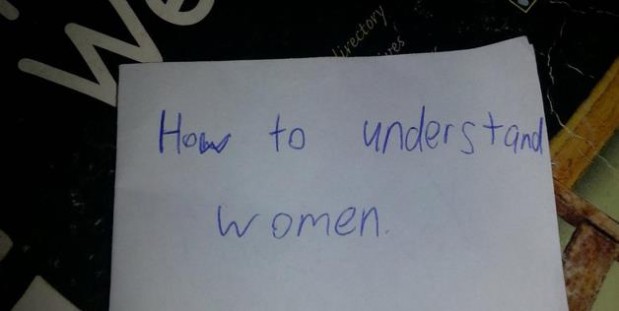 We
directory
How to understand
women.